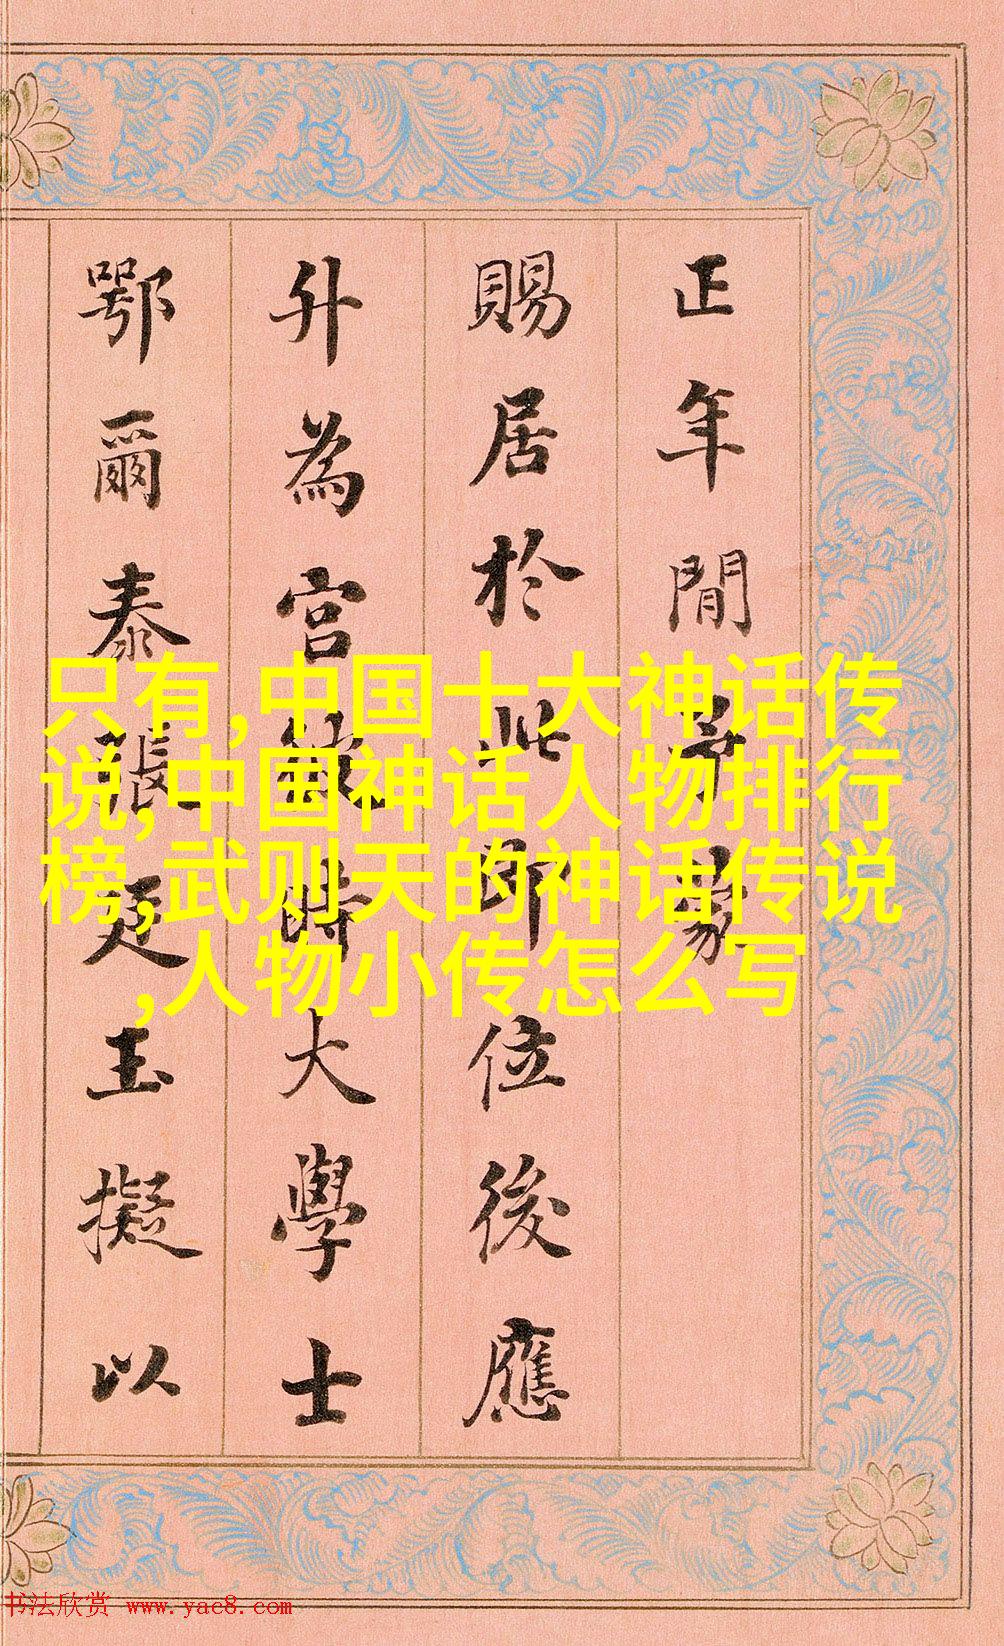 正年間予蒙
賜居於此即位後應
升為宮時大學士
鄂爾泰張廷玉擬以
只有,中国十大神话传
说,中国神话人物排行
榜,武则天的神话传说
,人物小传怎么写
书法欣赏 www.yac8.com